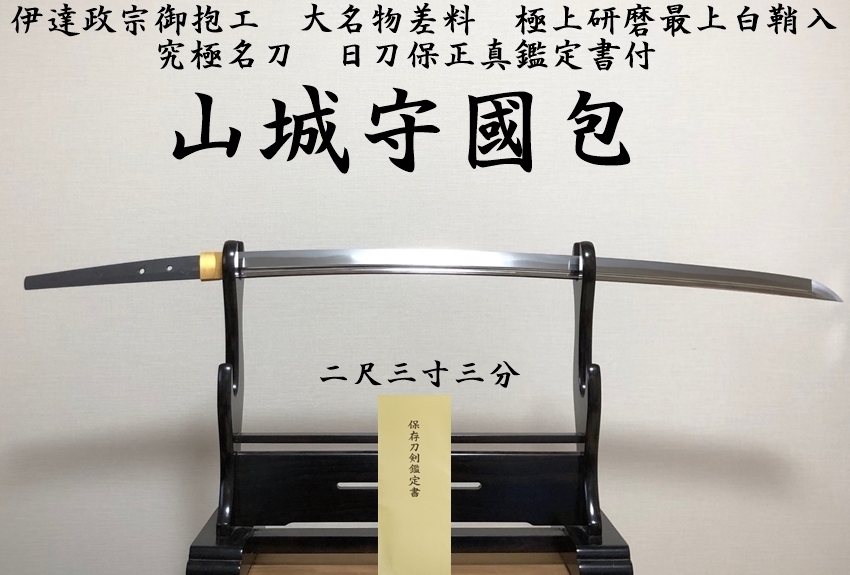 伊達政宗御抱工　大名物差料　極上研磨最上白鞘入
究極名刀　日刀保正真鑑定書付
山城守國包
二尺三寸三分
保存刀剣鑑定書